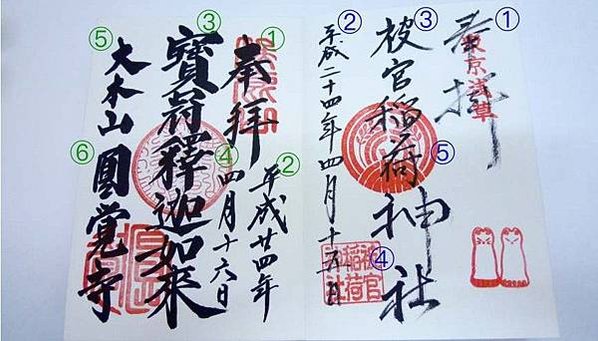 ①
奉拝
東京浅草
③
被官稲荷神社
⑤
②
平成二十四年四月十五日
④
①
奉拝
②
平成廿四年
四月十六日
③
寶冠釋迦如來
④
⑤
大本山
⑥
圓覺寺